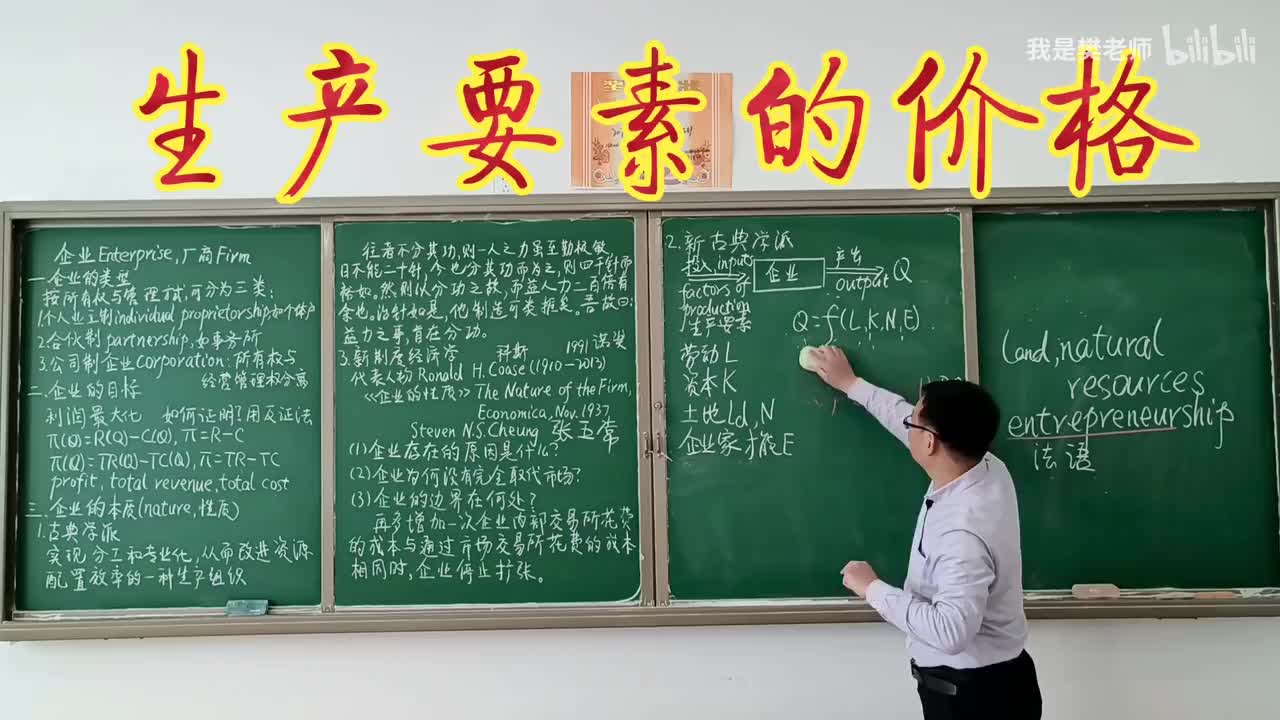 我是樊老师 bilibili
生产要素的价格
企业Enterprise,厂商Firm
一.企业的类型
按所有权与管理方式,可分为三类:
1.个人业主制individual proprietorship,如个体户
2.合伙制partnership,如事务所
3.公司制企业corporation:所有权与
经营管理权分离
二.企业的目标
利润最大化 如何证明?用反证法
π(Q)=R(Q)-C(Q),π=R-C
π(Q)=TR(Q)-TC(Q),π=TR-TC
profit,total revenue,total cost
三.企业的本质(nature,性质)
1.古典学派
实现分工和专业化,从而改进资源
配置效率的一种生产组织
往者不分其功,则一人之力虽至勤极敏
日不能二十针,今也分其功而为之,则四千针而
裕如。然则以分功之故,而益人力二百倍有
余也。治针如是,他制造可类推矣。吾故曰:
益力之事,首在分功。
3.新制度经济学 科斯 1991诺奖
代表人物Ronald H.Coase(1910-2013)
《企业的性质》The Nature of the Firm,
Economica,Nov.1937
Steven N.S.Cheung 张五常
(1)企业存在的原因是什么?
(2)企业为何没有完全取代市场?
(3)企业的边界在何处?
再多增加一次企业内部交易所花费
的成本与通过市场交易所花费的成本
相同时,企业停止扩张。
2.新古典学派
投入inputs 企业 产出 Q
output
factors of
production
生产要素
Q=f(L,K,N,E)
劳动L
资本K
土地Ld,N
企业家才能E
Land,natural
resources
entrepreneurship
法语